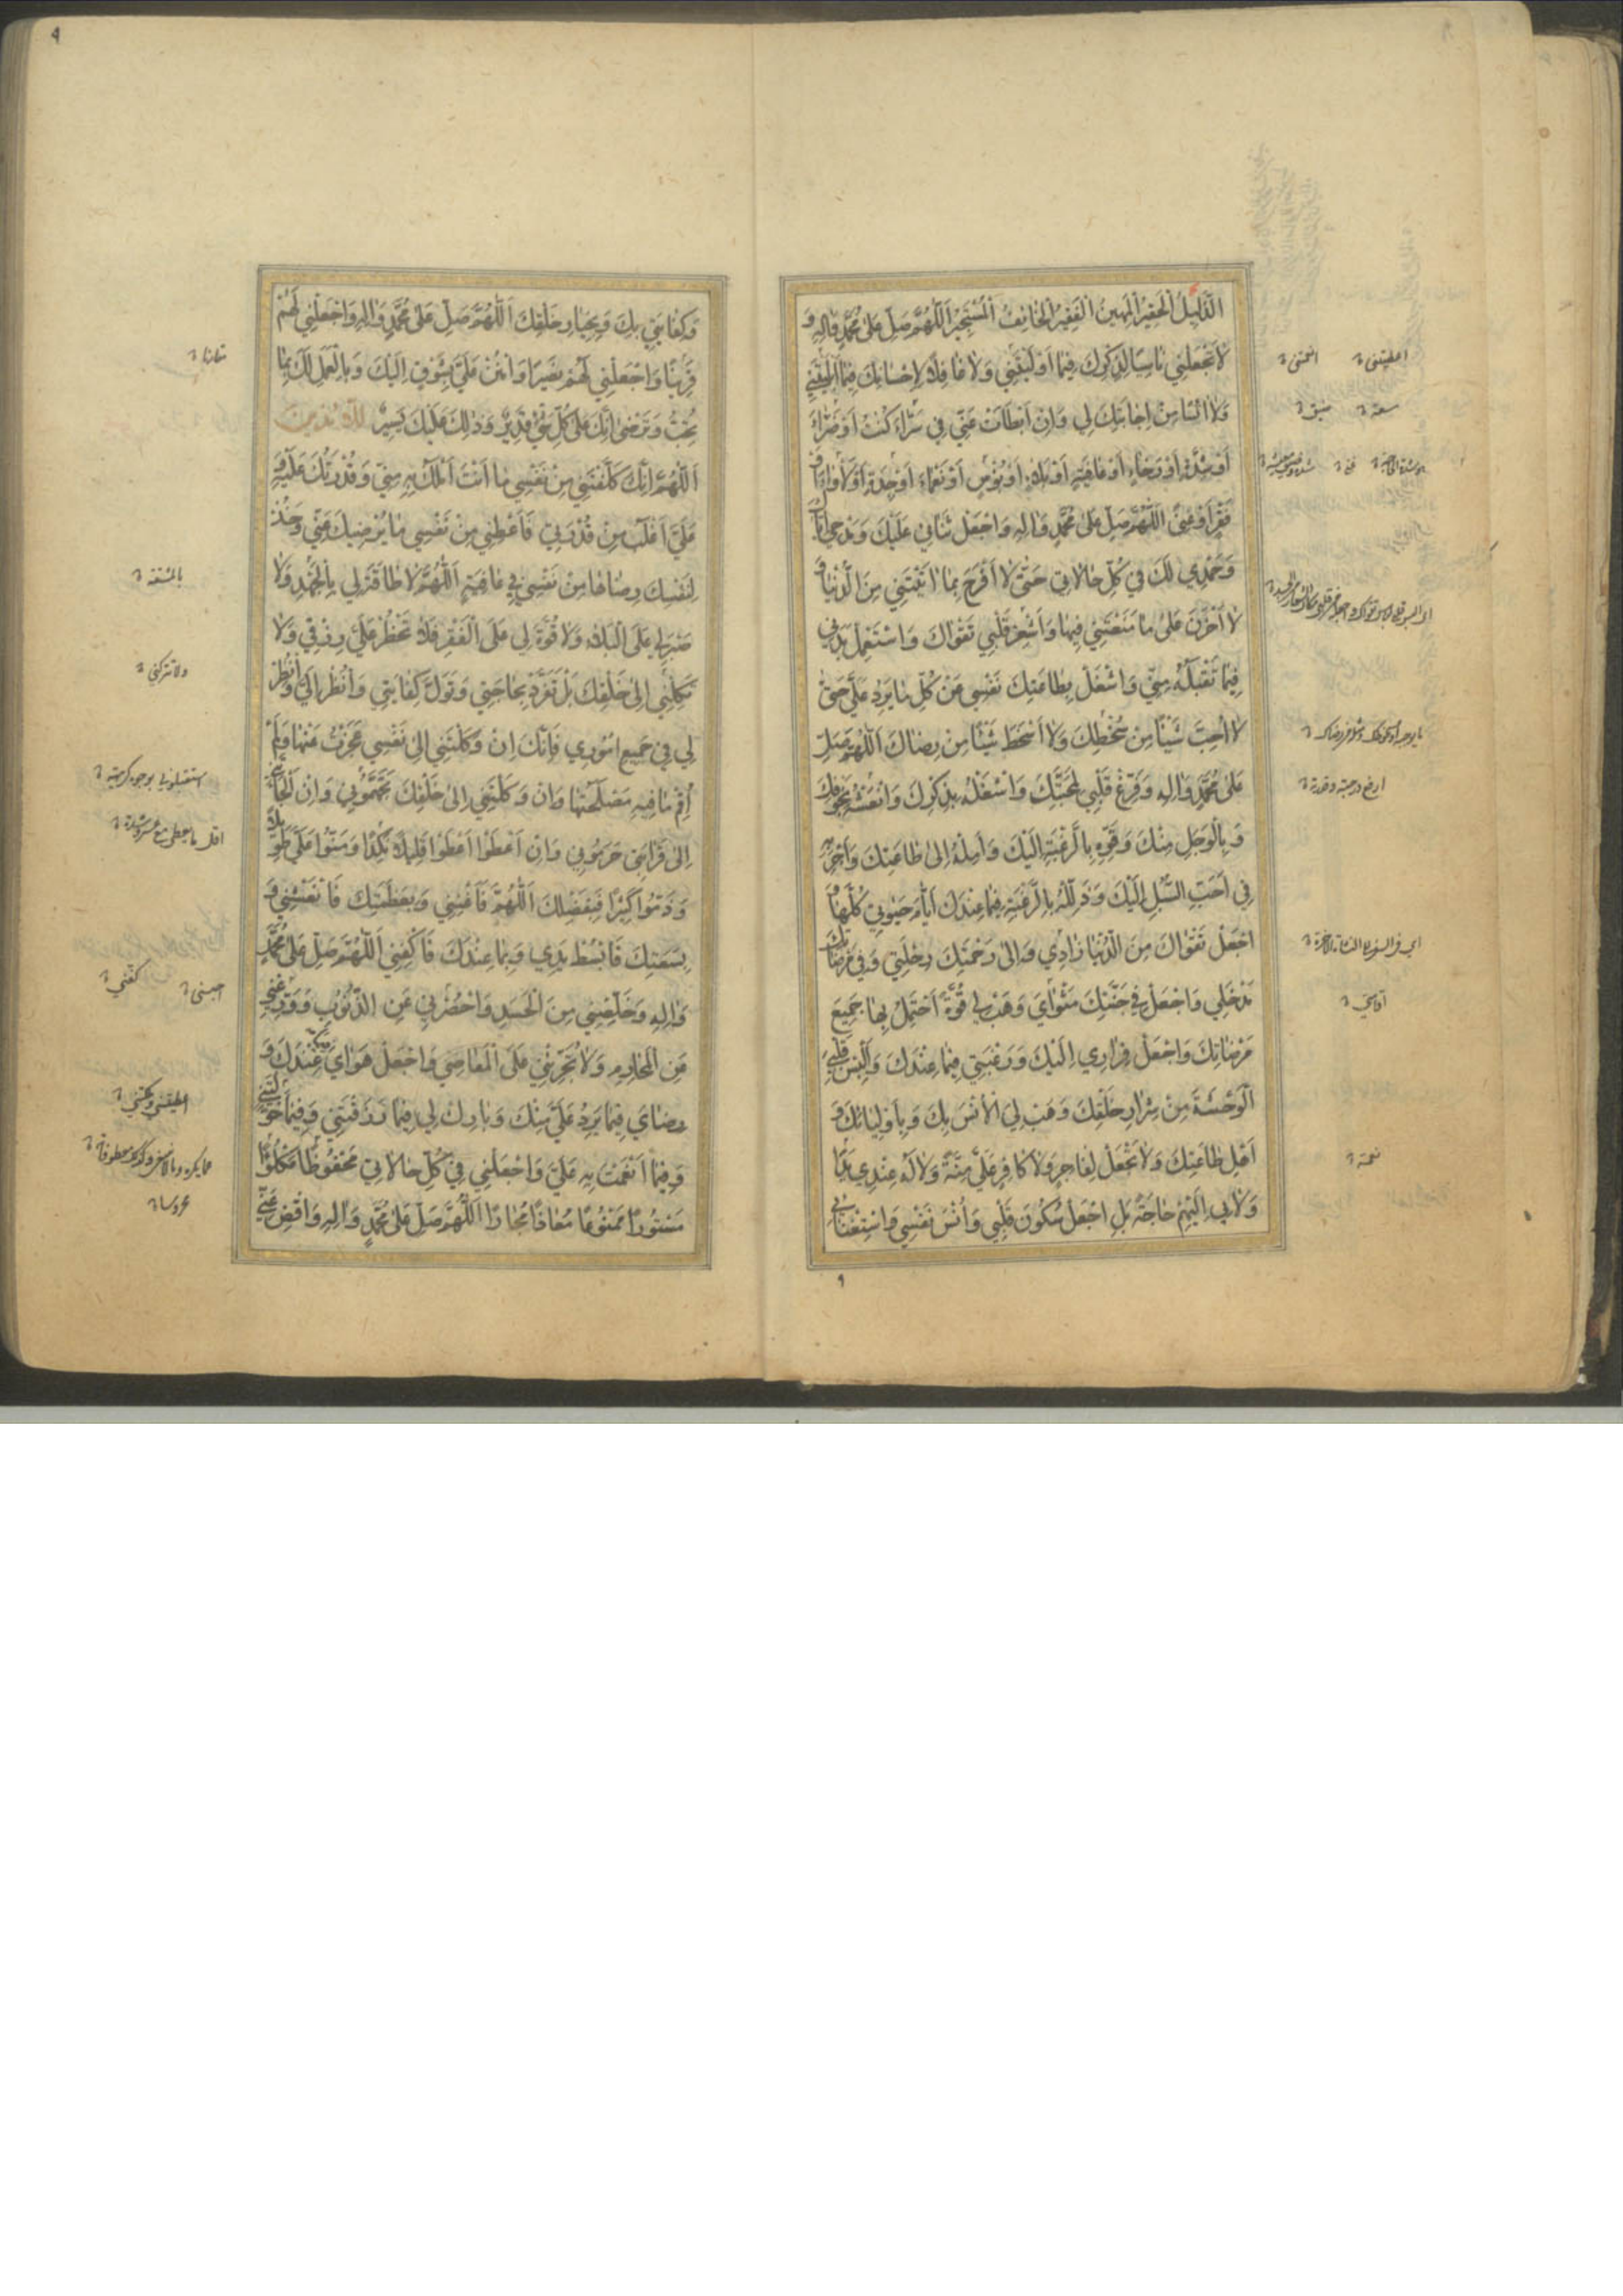 الذَّلِيلُ الْحَقِيرُ الْمَهِينُ الْفَقِيرُ الْخَائِفُ الْمُسْتَجِيرُ اَللّٰهُمَّ صَلِّ عَلىٰ مُحَمَّدٍ وَاٰلِهِ وَ
لاٰ تَجْعَلْنِي نٰاسِيًا لِذِكْرِكَ فِيمٰا أَوْلَيْتَنِي وَلاٰ غٰافِلًا لِإِحْسٰانِكَ فِيمٰا أَبْلَيْتَنِي
وَلاٰ اٰيِسًا مِنْ إِجٰابَتِكَ لِي وَإِنْ أَبْطَأَتْ عَنِّي فِي سَرّٰاءَ كُنْتُ أَوْ ضَرّٰاءَ
أَوْ شِدَّةٍ أَوْ رَخٰاءٍ أَوْ عٰافِيَةٍ أَوْ بَلاٰءٍ أَوْ بُؤْسٍ أَوْ نَعْمٰاءَ أَوْ جِدَةٍ أَوْ لَأْوٰاءَ أَوْ
فَقْرٍ أَوْ غِنًى اَللّٰهُمَّ صَلِّ عَلىٰ مُحَمَّدٍ وَاٰلِهِ وَاجْعَلْ ثَنٰائِي عَلَيْكَ وَمَدْحِي إِيّٰاكَ
وَحَمْدِي لَكَ فِي كُلِّ حٰالاٰتِي حَتّىٰ لاٰ أَفْرَحَ بِمٰا اٰتَيْتَنِي مِنَ الدُّنْيٰا وَ
لاٰ أَحْزَنَ عَلىٰ مٰا مَنَعْتَنِي فِيهٰا وَأَشْعِرْ قَلْبِي تَقْوٰاكَ وَاسْتَعْمِلْ بَدَنِي
فِيمٰا تَقْبَلُهُ مِنِّي وَاشْغَلْ بِطٰاعَتِكَ نَفْسِي عَنْ كُلِّ مٰا يَرِدُ عَلَيَّ حَتّىٰ
لاٰ أُحِبَّ شَيْئًا مِنْ سُخْطِكَ وَلاٰ أَسْخَطَ شَيْئًا مِنْ رِضٰاكَ اَللّٰهُمَّ صَلِّ
عَلىٰ مُحَمَّدٍ وَاٰلِهِ وَفَرِّغْ قَلْبِي لِمَحَبَّتِكَ وَاشْغَلْهُ بِذِكْرِكَ وَانْعَشْهُ بِخَوْفِكَ
وَبِالْوَجَلِ مِنْكَ وَقَوِّهِ بِالرَّغْبَةِ إِلَيْكَ وَأَمِلْهُ إِلىٰ طٰاعَتِكَ وَأَجْرِ بِهِ
فِي أَحَبِّ السُّبُلِ إِلَيْكَ وَذَلِّلْهُ بِالرَّغْبَةِ فِيمٰا عِنْدَكَ أَيّٰامَ حَيٰوتِي كُلِّهٰا وَ
اجْعَلْ تَقْوٰاكَ مِنَ الدُّنْيٰا زٰادِي وَإِلىٰ رَحْمَتِكَ رِحْلَتِي وَفِي مَرْضٰاتِكَ
مَدْخَلِي وَاجْعَلْ فِي جَنَّتِكَ مَثْوٰايَ وَهَبْ لِي قُوَّةً أَحْتَمِلُ بِهٰا جَمِيعَ
مَرْضٰاتِكَ وَاجْعَلْ فِرٰارِي إِلَيْكَ وَرَغْبَتِي فِيمٰا عِنْدَكَ وَأَلْبِسْ قَلْبِيَ
الْوَحْشَةَ مِنْ شِرٰارِ خَلْقِكَ وَهَبْ لِيَ الْأُنْسَ بِكَ وَبِأَوْلِيٰائِكَ وَ
أَهْلِ طٰاعَتِكَ وَلاٰ تَجْعَلْ لِفٰاجِرٍ وَلاٰ كٰافِرٍ عَلَيَّ مِنَّةً وَلاٰ لَهُ عِنْدِي يَدًا
وَلاٰ بِي إِلَيْهِمْ حٰاجَةً بَلِ اجْعَلْ سُكُونَ قَلْبِي وَأُنْسَ نَفْسِي وَاسْتِغْنٰائِي
اعطيتنى
انعمتنى
سعة
ضيق
نعمة
٩
وَكِفٰايَتِي بِكَ وَبِخِيٰارِ خَلْقِكَ اَللّٰهُمَّ صَلِّ عَلىٰ مُحَمَّدٍ وَاٰلِهِ وَاجْعَلْنِي لَهُمْ
قَرِينًا وَاجْعَلْنِي لَهُمْ نَصِيرًا وَامْنُنْ عَلَيَّ بِشَوْقٍ إِلَيْكَ وَبِالْعَمَلِ لَكَ بِمٰا
تُحِبُّ وَتَرْضىٰ إِنَّكَ عَلىٰ كُلِّ شَيْءٍ قَدِيرٌ وَذٰلِكَ عَلَيْكَ يَسِيرٌ
اَللّٰهُمَّ إِنَّكَ كَلَّفْتَنِي مِنْ نَفْسِي مٰا أَنْتَ أَمْلَكُ بِهِ مِنِّي وَقُدْرَتُكَ عَلَيْهِ وَ
عَلَيَّ أَغْلَبُ مِنْ قُدْرَتِي فَأَعْطِنِي مِنْ نَفْسِي مٰا يُرْضِيكَ عَنِّي وَخُذْ
لِنَفْسِكَ رِضٰاهٰا مِنْ نَفْسِي فِي عٰافِيَةٍ اَللّٰهُمَّ لاٰ طٰاقَةَ لِي بِالْجَهْدِ وَلاٰ
صَبْرَ لِي عَلَى الْبَلاٰءِ وَلاٰ قُوَّةَ لِي عَلَى الْفَقْرِ فَلاٰ تَحْظُرْ عَلَيَّ رِزْقِي وَلاٰ
تَكِلْنِي إِلىٰ خَلْقِكَ بَلْ تَفَرَّدْ بِحٰاجَتِي وَتَوَلَّ كِفٰايَتِي وَانْظُرْ إِلَيَّ وَانْظُرْ
لِي فِي جَمِيعِ أُمُورِي فَإِنَّكَ إِنْ وَكَلْتَنِي إِلىٰ نَفْسِي عَجَزْتُ عَنْهٰا وَلَمْ
أُقِمْ مٰا فِيهِ مَصْلَحَتُهٰا وَإِنْ وَكَلْتَنِي إِلىٰ خَلْقِكَ تَجَهَّمُونِي وَإِنْ أَلْجَأْتَنِي
إِلىٰ قَرٰابَتِي حَرَمُونِي وَإِنْ أَعْطَوْا أَعْطَوْا قَلِيلًا نَكِدًا وَمَنُّوا عَلَيَّ طَوِيلًا
وَذَمُّوا كَثِيرًا فَبِفَضْلِكَ اَللّٰهُمَّ فَأَغْنِنِي وَبِعَظَمَتِكَ فَانْعَشْنِي وَ
بِسَعَتِكَ فَابْسُطْ يَدِي وَبِمٰا عِنْدَكَ فَاكْفِنِي اَللّٰهُمَّ صَلِّ عَلىٰ مُحَمَّدٍ
وَاٰلِهِ وَخَلِّصْنِي مِنَ الْحَسَدِ وَاحْصُرْنِي عَنِ الذُّنُوبِ وَوَرِّعْنِي
عَنِ الْمَحٰارِمِ وَلاٰ تُجَرِّئْنِي عَلَى الْمَعٰاصِي وَاجْعَلْ هَوٰايَ عِنْدَكَ وَ
رِضٰايَ فِيمٰا يَرِدُ عَلَيَّ مِنْكَ وَبٰارِكْ لِي فِيمٰا رَزَقْتَنِي وَفِيمٰا خَوَّلْتَنِي
وَفِيمٰا أَنْعَمْتَ بِهِ عَلَيَّ وَاجْعَلْنِي فِي كُلِّ حٰالاٰتِي مَحْفُوظًا مَكْلُوءًا
مَسْتُورًا مَمْنُوعًا مُعٰاذًا مُجٰارًا اَللّٰهُمَّ صَلِّ عَلىٰ مُحَمَّدٍ وَاٰلِهِ وَاقْضِ عَنِّي
بالمشقة
ولا تتركني
احبسنى
كفني
محروسا